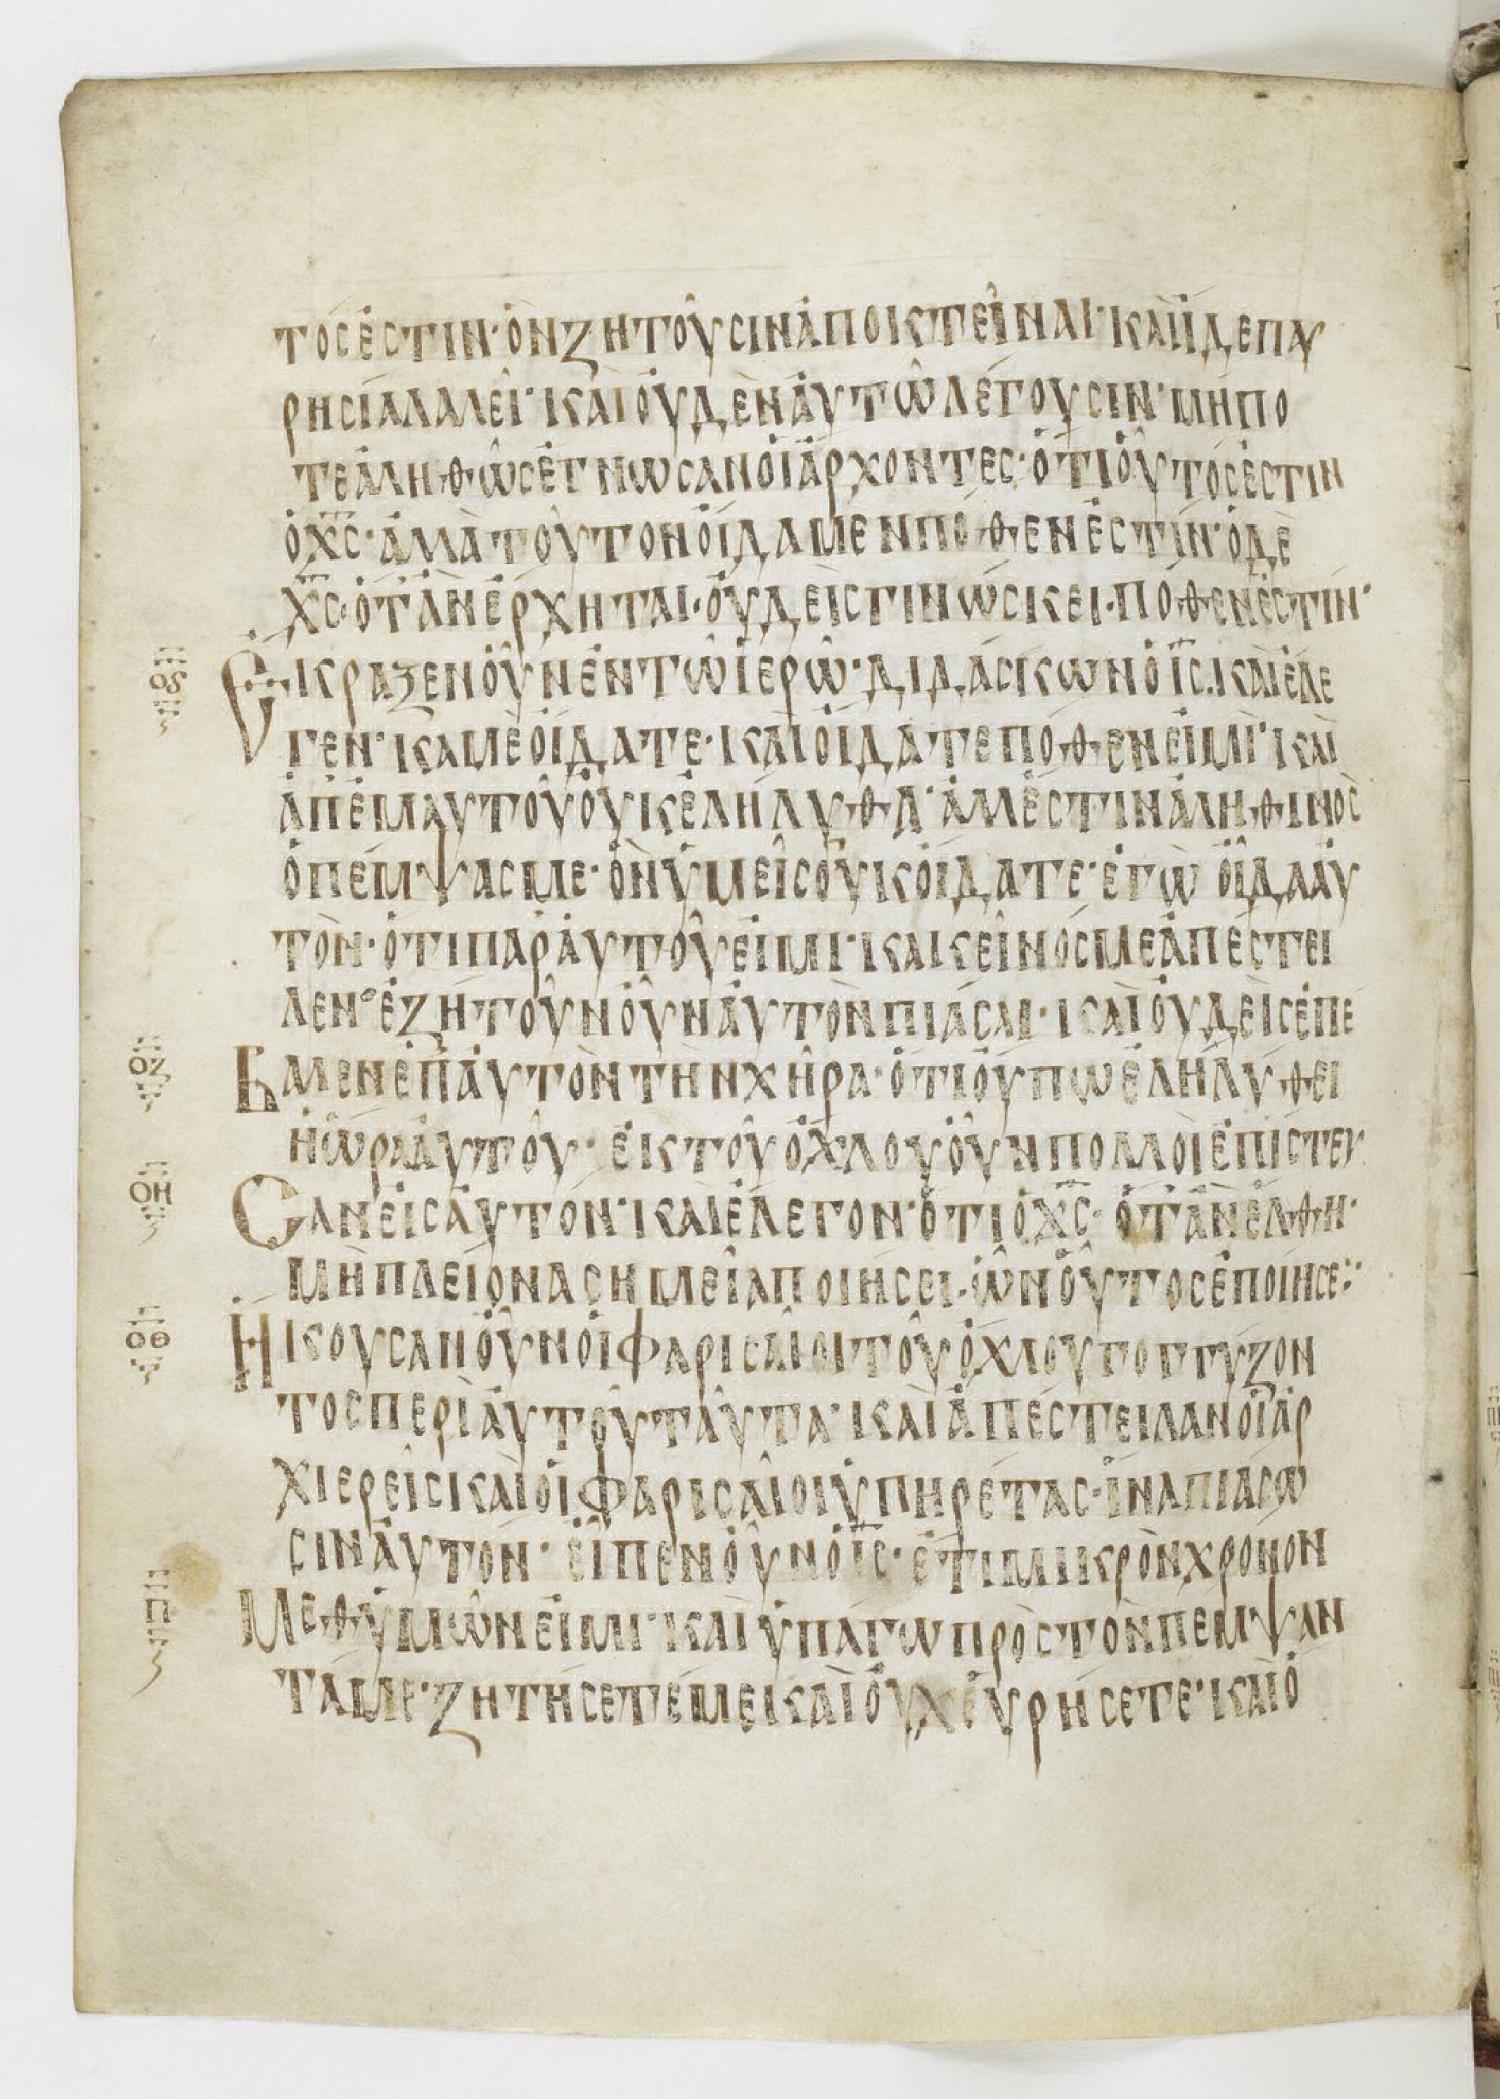 τοσἐστιν· ὁνζητοῦσιναποκτεῖναι· καιἴδεπαρ
ρησίαλαλεῖ· καὶουδὲναυτῶλέγουσιν· μήπο
τεἀληθῶσἔγνωσανοἱάρχοντες· ὁτιοῦτόσἐστιν
ὁχς· ἀλλὰτοῦτονοἴδαμενπόθενἐστίν· ὁδὲ
χς· ὁτἀνἔρχηται· οὐδεὶσγινώσκει· πόθενἐστίν·
ος
Ἔκραξενοῦνἐντῶἱερῶ· διδάσκωνὁις. καιἔλε
γεν· καμὲοἴδατε· καὶοἴδατεπόθενεἰμί· καὶ
ἀπἐμαυτοῦοὐκἐλήλυθα· ἀλλἔστινἀληθινὸς
ὁπέμψασμε· ὁνὑμεῖσοὐκοἴδατε· ἐγὼ οἶδααὐ
τὸν· ὁτιπαραὐτοῦεἰμι· κακεῖνόσμεἀπέστει
λεν· ἐζήτουνοῦναὐτὸνπιάσαι· καὶοὐδεὶσἐπέ
οζ
βαλλενἐπαὐτὸντὴνχῆρα· ὁτιοὔπωἐληλύθει
ἡὥρααὐτοῦ· ἐκτοῦὄχλουοῦνπολλοὶἐπίστευ
οη
Σανεἰσαὐτόν· καιἔλεγον· ὁτιὁχς· ὁτἀνἔλθη·
μὴπλείονασημεῖαποιήσει· ὧνοὗτοσἐποίησε:·
οθ
Ἤκουσανοῦνοἱφαρισαῖοιτοῦὄχλουγογγύζον
τοσπερὶαὐτοῦταῦτα· καὶἀπέστειλανοἱἀρ
χιερεῖσκαὶοἱφαρισαῖοιὑπηρέτας· ἱναπιάσω
σιναὐτόν· εἶπενοῦνὁις· ἔτιμικρὸνχρόνον
π
Μεθὑμῶνεἰμι· καὶὑπάγωπρὸστὸνπέμψαν
τάμε· ζητήσετέμεκαὶοὐχεὑρήσετε· καὶὁ